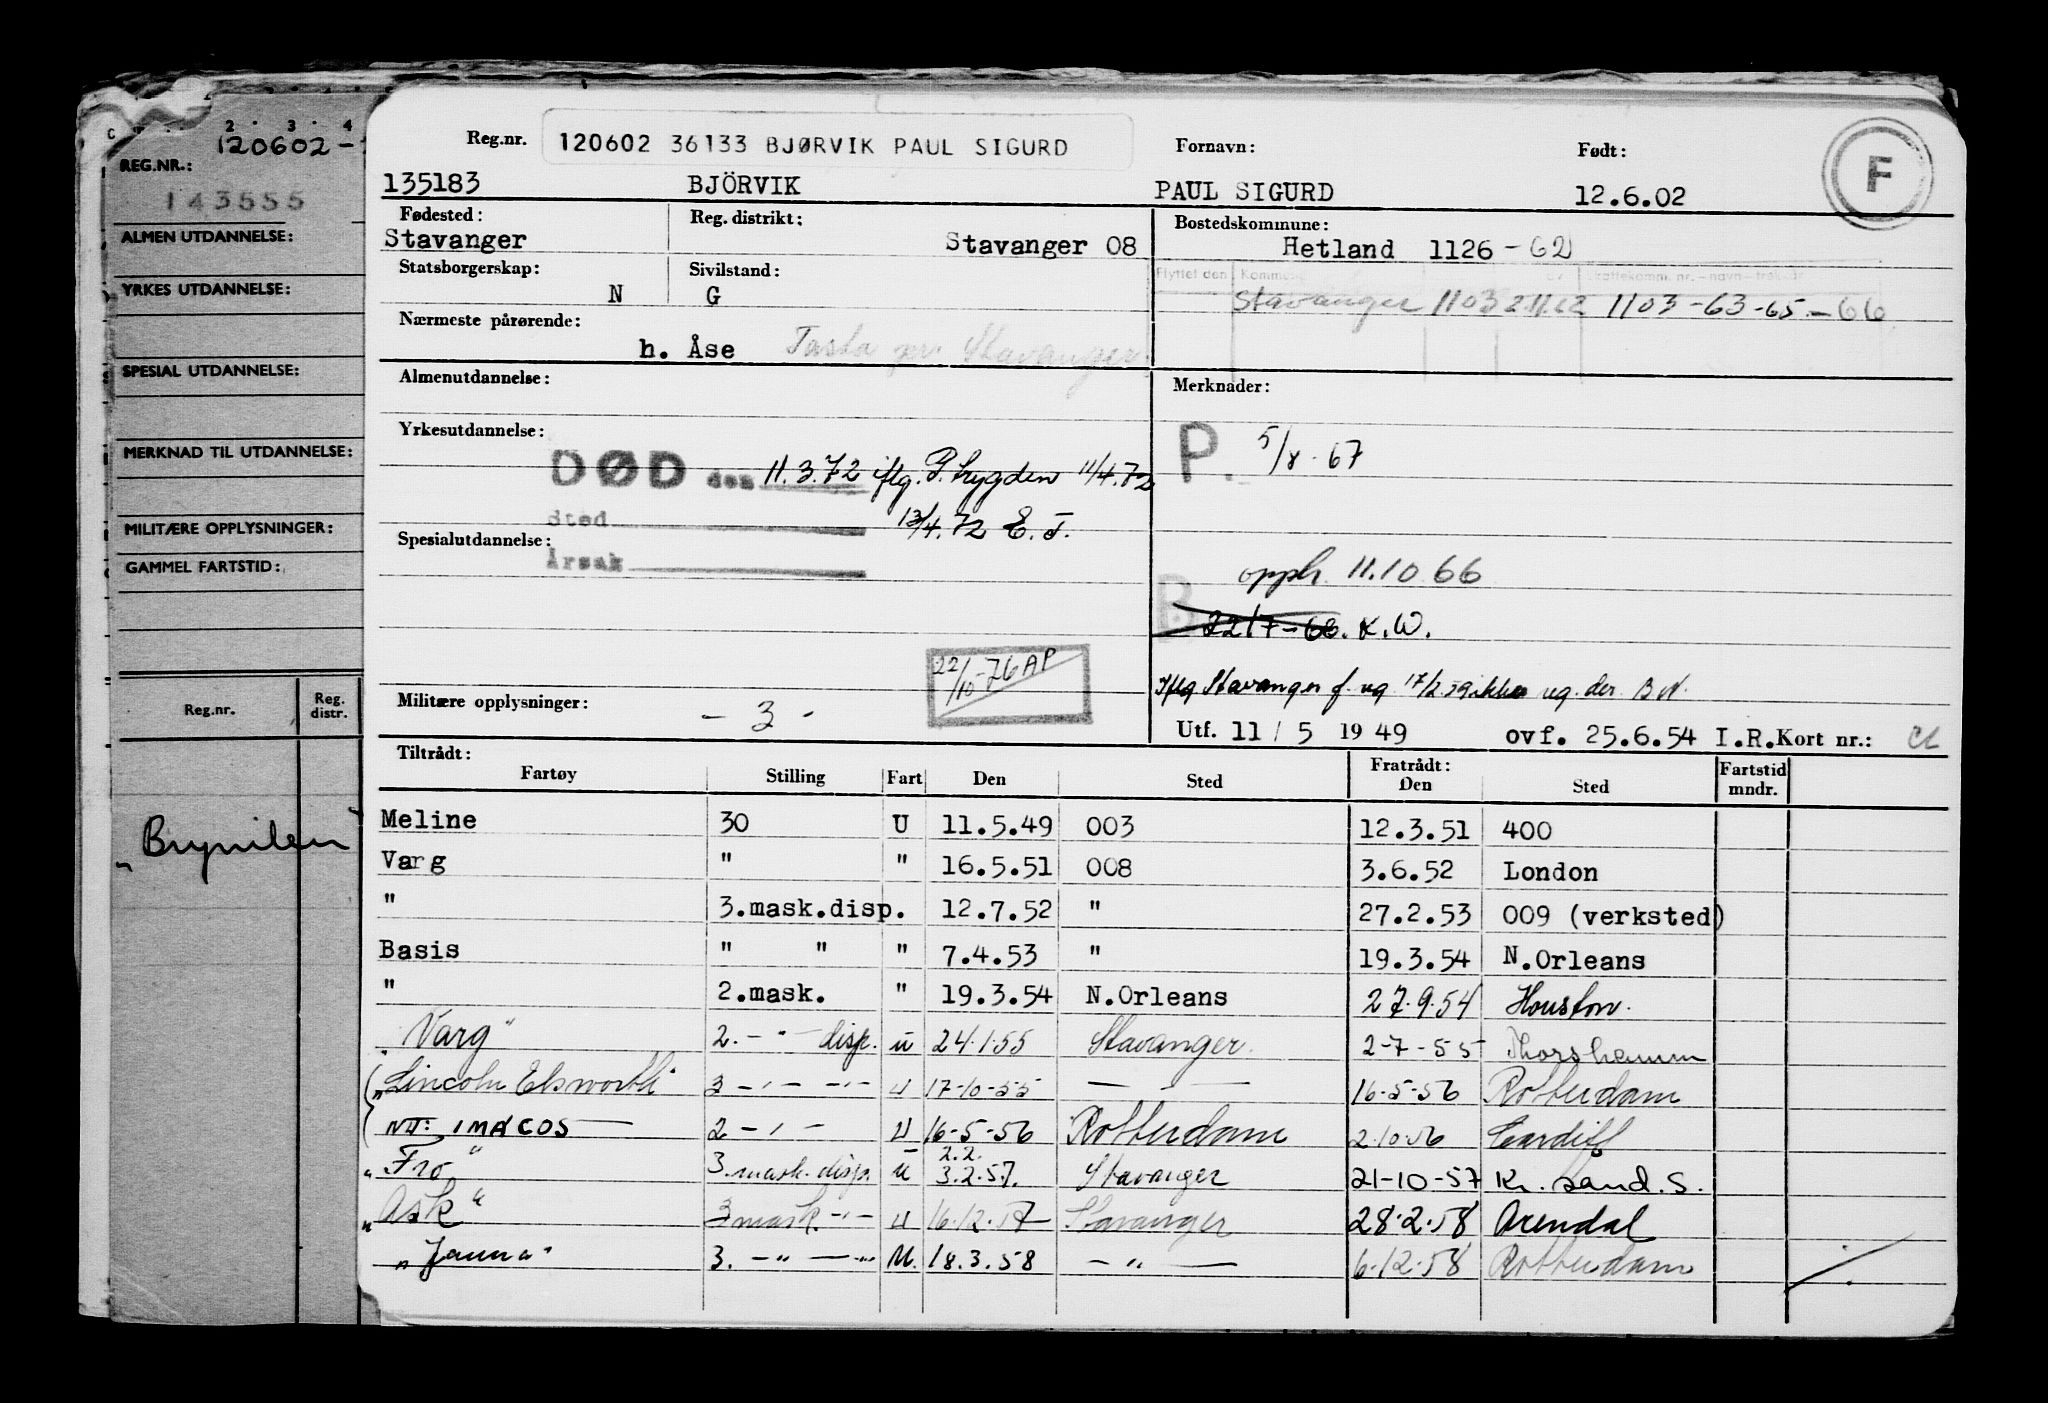 2 3 4
C
120602-
REG.NR.:
143555
ALMEN UTDANNELSE:
YRKES UTDANNELSE:
SPESIAL UTDANNELSE:
MERKNAD TIL UTDANNELSE:
MILITÆRE OPPLYSNINGER:
GAMMEL FARTSTID:
Reg.nr. Reg. distr.
Reg.nr. 120602 36133 BJØRVIK PAUL SIGURD Fornavn: Født: F
135183 BJÖRVIK PAUL SIGURD 12.6.02
Fødested: Reg. distrikt: Bostedskommune:
Stavanger Stavanger 08 Hetland 1126 -62
Statsborgerskap: Sivilstand: Flyttet den Kommune Skattekomm. nr. - navn - trekkår
N G Stavanger 1103 2.11.62 1103 -63-65-66
Nærmeste pårørende:
h. Åse Tasta pr. Stavanger
Almenutdannelse: Merknader:
Yrkesutdannelse: P. 5/8-67
DØD den 11.3.72 iflg. P. trygden 11/4.72
Sted 13/4.72 E.T.
Spesialutdannelse:
Årsak opph. 11.10 66
B 22/7-66. K.W.
22/10-76 AP
Iflg Stavanger f. 17/2.59 ikke
Militære opplysninger: - 3 -
Utf. 11 / 5 19 49 ovf. 25.6.54 I.R.Kort nr.:
Tiltrådt: Fratrådt:
Fartøy Stilling Fart Den Sted Den Sted Fartstid mndr.
Meline 30 U 11.5.49 003 12.3.51 400
Varg " " 16.5.51 008 3.6.52 London
" 3.mask.disp. 12.7.52 " 27.2.53 009 (verksted)
Basis " " " 7.4.53 " 19.3.54 N.Orleans
" 2.mask. " 19.3.54 N.Orleans 27.9.54 Houston.
"Varg" 2. - " - disp. u 24.1.55 Stavanger. 2-7-55 Thorshamn
"Lincoln Elsworth" 3 - " - - " - u 17-10-55 — — 16-5-56 Rotterdam
MT: IMACOS 2 - " - U 16-5-56 Rotterdam 2.10.56 Cardiff
"Fro" 3. mask. disp. u 2.2. 3.2.57. Stavanger 21-10-57 Kr. sand. S.
"Ask" 3 mask. - " - u 16.12.57 Stavanger 28.2.58 Arendal
"Janna" 3. - " - - " - U. 18.3.58 - " - 6.12.58 Rotterdam